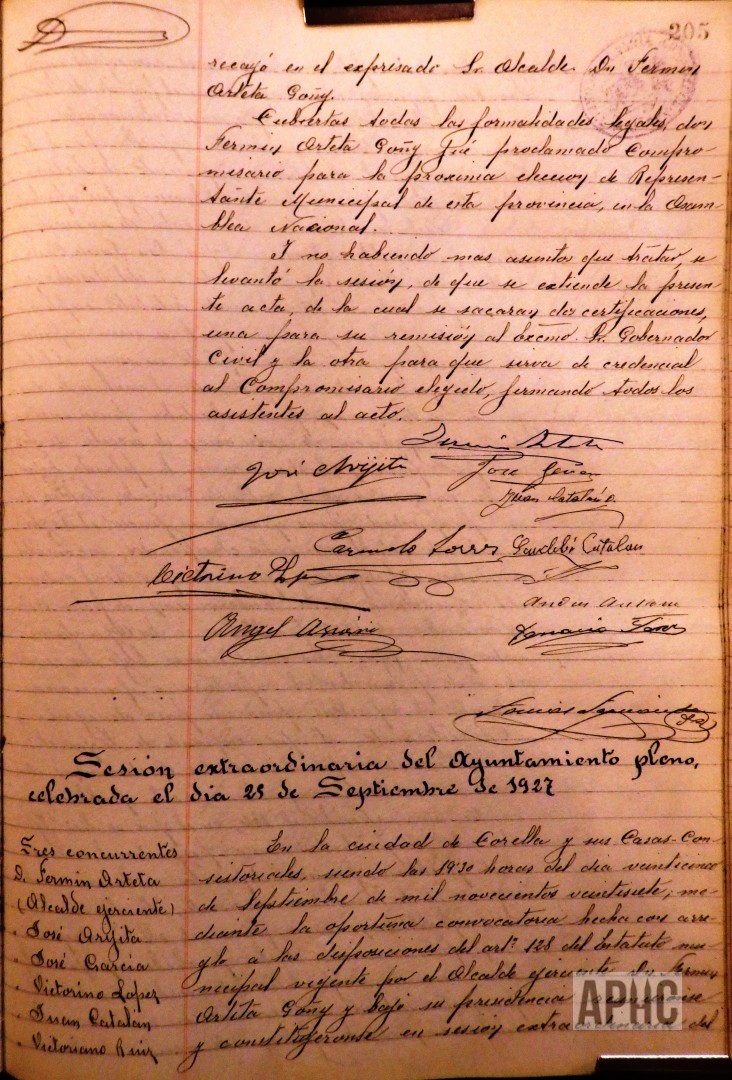 205
recayó en el expresado Sr. Alcalde Dn Fermin
Arteta Goñy.
Cubiertas todas las formalidades legales, don
Fermin Arteta Goñy fué proclamado Compro-
misario para la proxima eleccion de Represen-
tante Municipal de esta provincia, en la Asam-
blea Nacional.
Y no habiendo mas asuntos que tratar, se
levantó la sesión, de que se extiende la presen-
te acta, de la cual se sacaran dos certificaciones,
una para su remisión al Excmo. Sr. Gobernador
Civil y la otra para que sirva de credencial
al Compromisario elegido, firmando todos los
asistentes al acto.
Fermin Arteta
José Argita
José
Juan Catalán
Carmelo
Catalan
Victorino
Angel
Ignacio
Sesión extraordinaria del Ayuntamiento pleno,
celebrada el dia 25 de Septiembre de 1927
Sres concurrentes
D. Fermin Arteta
(Alcalde ejerciente)
" José Argita
" José Garcia
" Victorino Lopez
" Juan Catalán
" Victoriano Ruiz
En la ciudad de Corella y sus Casas-Con-
sistoriales, siendo las 19'30 horas del dia veinticinco
de Septiembre de mil novecientos veintisiete, me-
diante la oportuna convocatoria hecha con arre-
glo á las disposiciones del artº 128 del Estatuto mu-
nicipal vigente por el Alcalde ejerciente Dn Fermin
Arteta Goñy y bajo su presidencia
y constituyeronse en sesión extraordinaria del
APHC